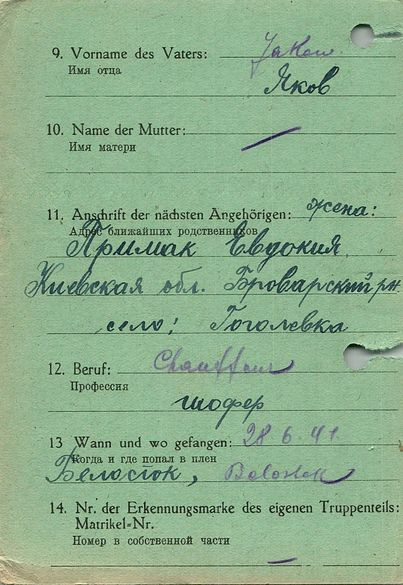 9. Vorname des Vaters: Jakow
Имя отца
Яков
10. Name der Mutter: —
Имя матери
11. Anschrift der nächsten Angehörigen: жена:
Адрес ближайших родственников
Примак Евдокия
Киевская обл. Броварский рн
село: Гоголевка
12. Beruf: Chauffeur
Профессия
шофер
13 Wann und wo gefangen: 28 6. 41
Когда и где попал в плен
Белосток, Belostok
14. Nr. der Erkennungsmarke des eigenen Truppenteils:
Matrikel-Nr.
Номер в собственной части
—